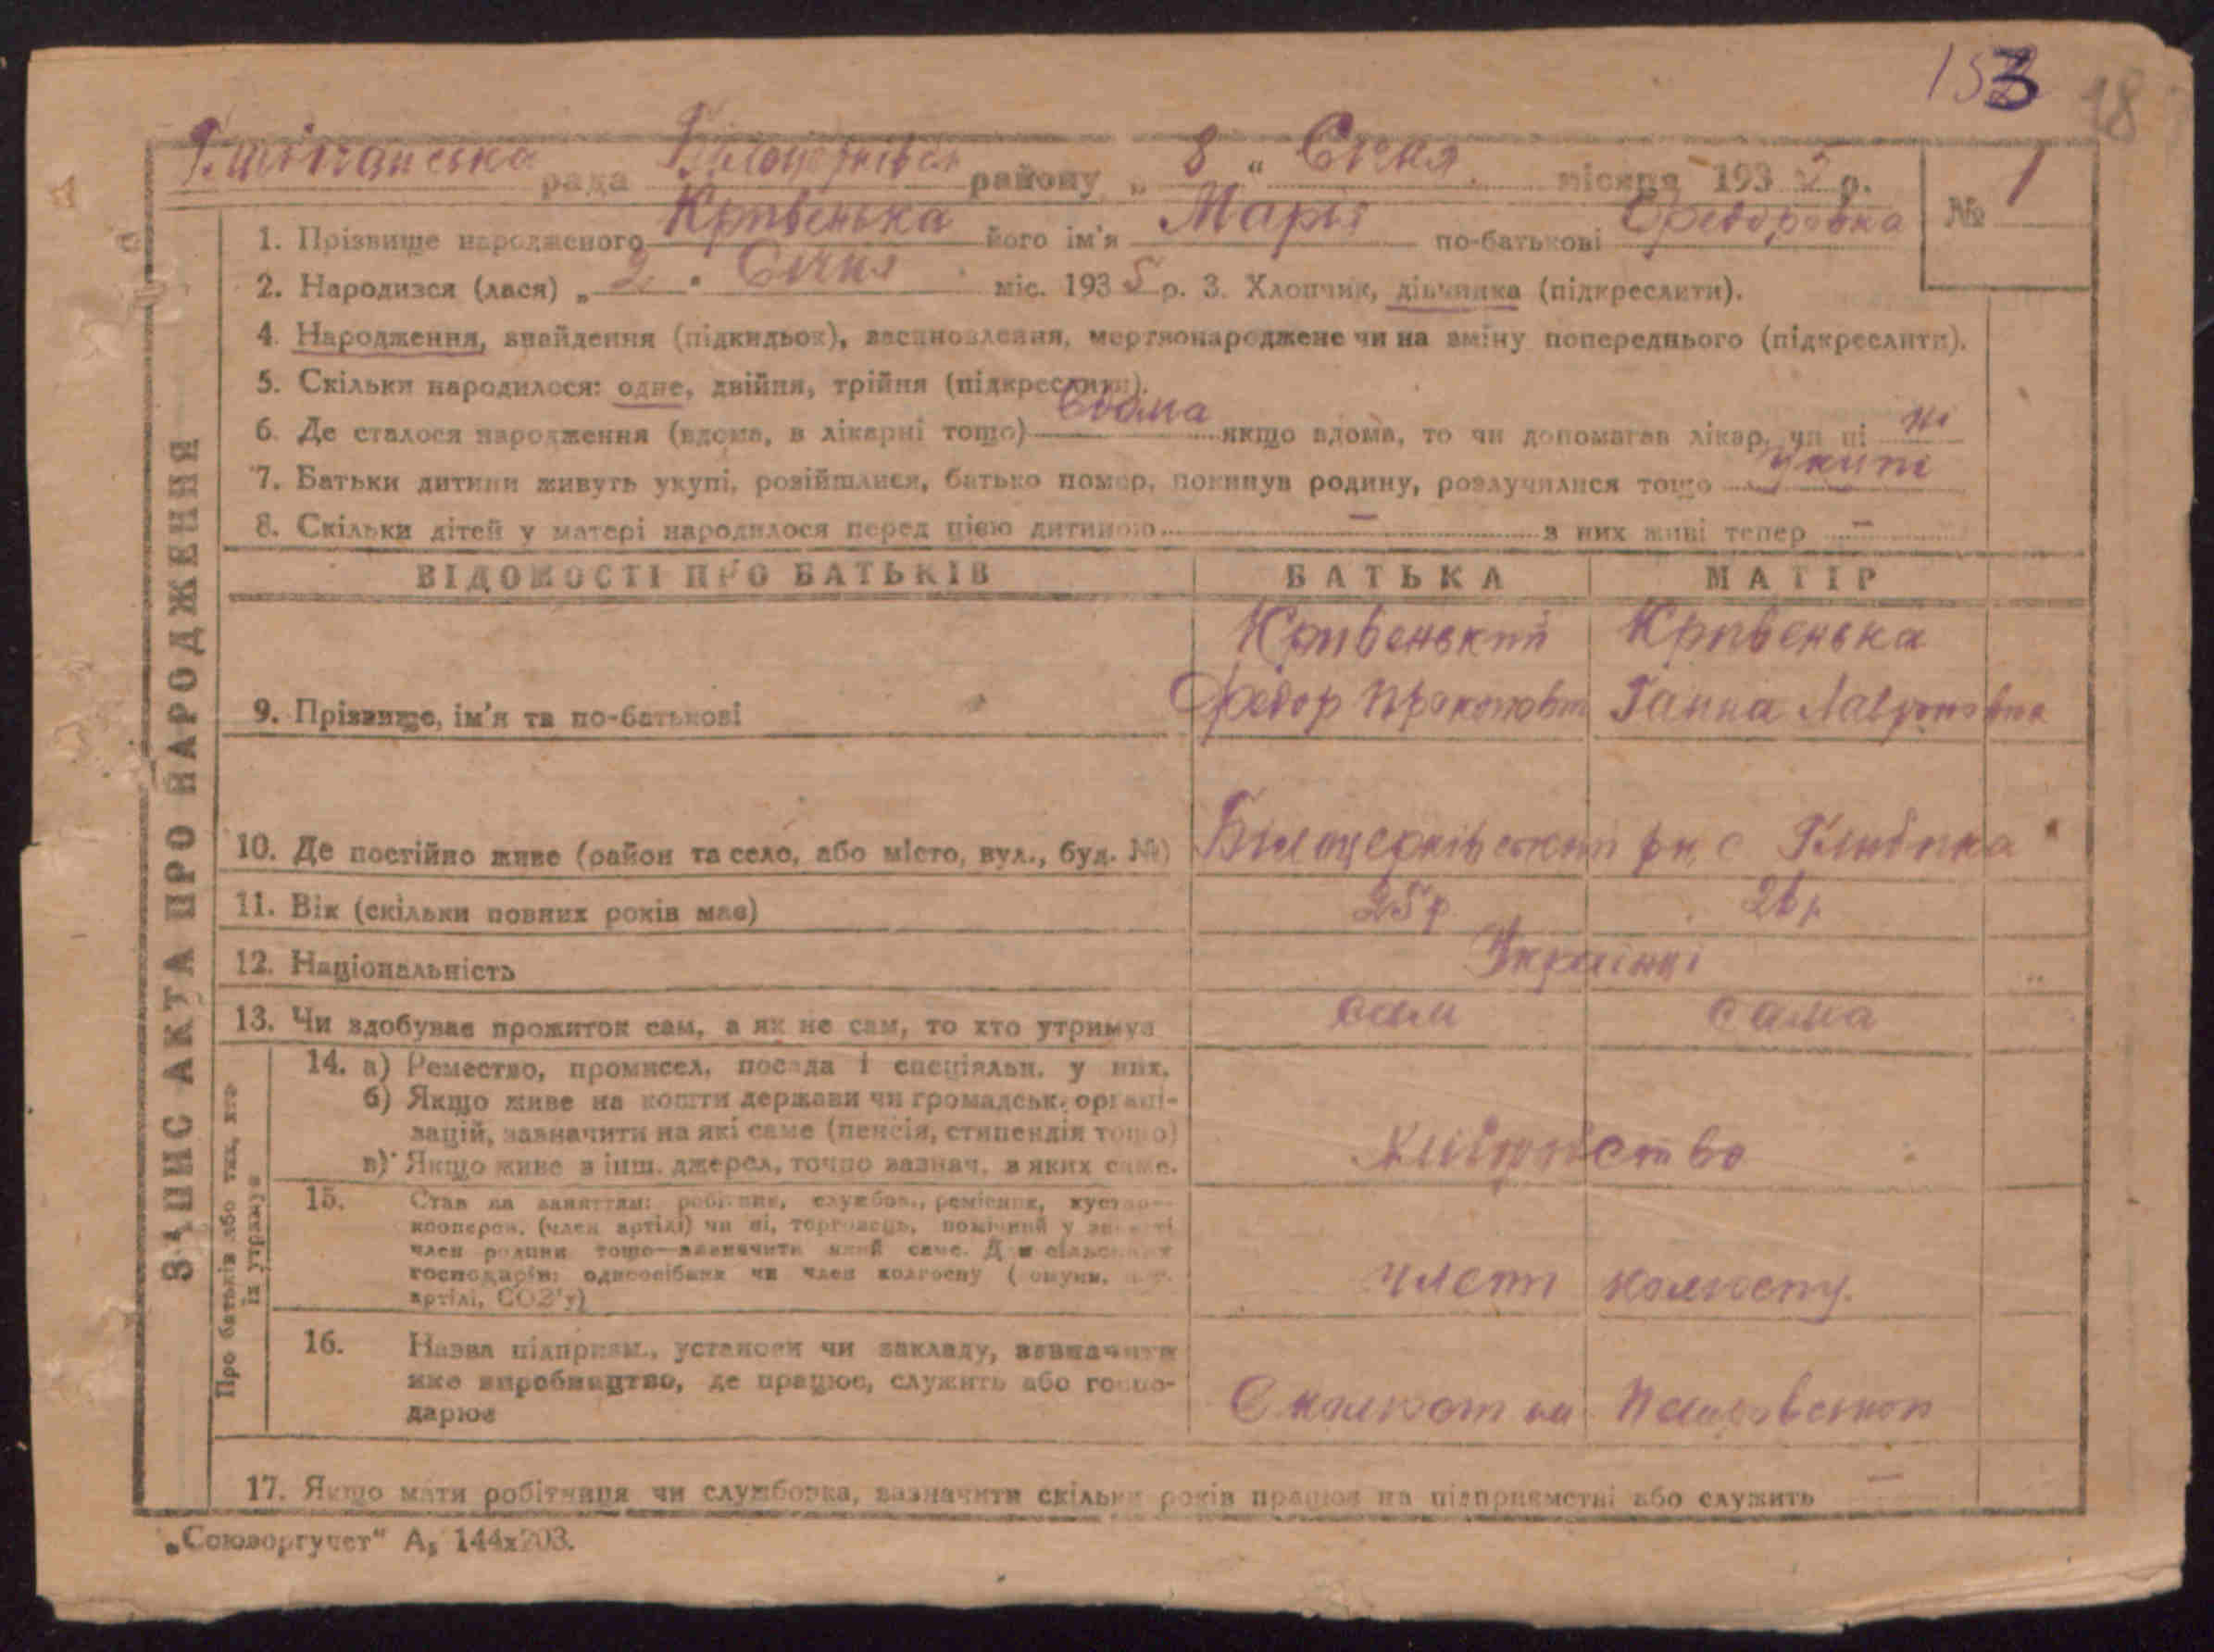 153 18
рада району „ 8 " Січня місяця 1935 р. № 1
1. Прізвище народженого Кривенька його ім'я Марія по-батькові Федоровна
2. Народився (лася) „ 2 " Січня міс. 1935 р. 3. Хлопчик, дівчинка (підкреслити).
4. Народження, знайдення (підкидьок), всиновлення, мертвонароджене чи на зміну попереднього (підкреслити).
5. Скільки народилося: одне, двійня, трійня (підкреслити).
6. Де сталося народження (вдома, в лікарні тощо) вдома якщо вдома, то чи допомагав лікар, чи ні ні
7. Батьки дитини живуть укупі, розійшлися, батько помер, покинув родину, розлучилися тощо укупі
8. Скільки дітей у матері народилося перед цією дитиною – з них живі тепер –
ЗАПИС АКТА ПРО НАРОДЖЕННЯ
ВІДОМОСТІ ПРО БАТЬКІВ БАТЬКА МАТІР
Кривенький Кривенька
9. Прізвище, ім'я та по-батькові Федор Ганна
10. Де постійно живе (район та село, або місто, вул., буд. №) Білоцерківський рн с
11. Вік (скільки повних років має) 25 р. 26 р
12. Національність Українці
13. Чи здобуває прожиток сам, а як не сам, то хто утримує сам сама
Про батьків або тих, хто їх утримує
14. а) Ремество, промисел, посада і спеціяльн. у них.
б) Якщо живе на кошти держави чи громадськ. органі-
зацій, зазначити на які саме (пенсія, стипендія тощо)
в) Якщо живе з інш. джерел, точно зазнач. з яких саме.
15. Стан за заняттям: робітник, службов., ремісник, кустар—
кооперов. (член артілі) чи ні, торговець, помічний у занятті
член родини тощо—зазначити який саме. Для сільських
господарів: одноосібник чи член колгоспу (
артілі, СОЗ'у)
члени колгоспу.
16. Назва підприєм., установи чи закладу, зазначити
яке виробництво, де працює, служить або госпо-
дарює
17. Якщо мати робітниця чи службовка, зазначити скільки років працює на підприємстві або служить –
„Союзоргучет" А₅ 144х203.